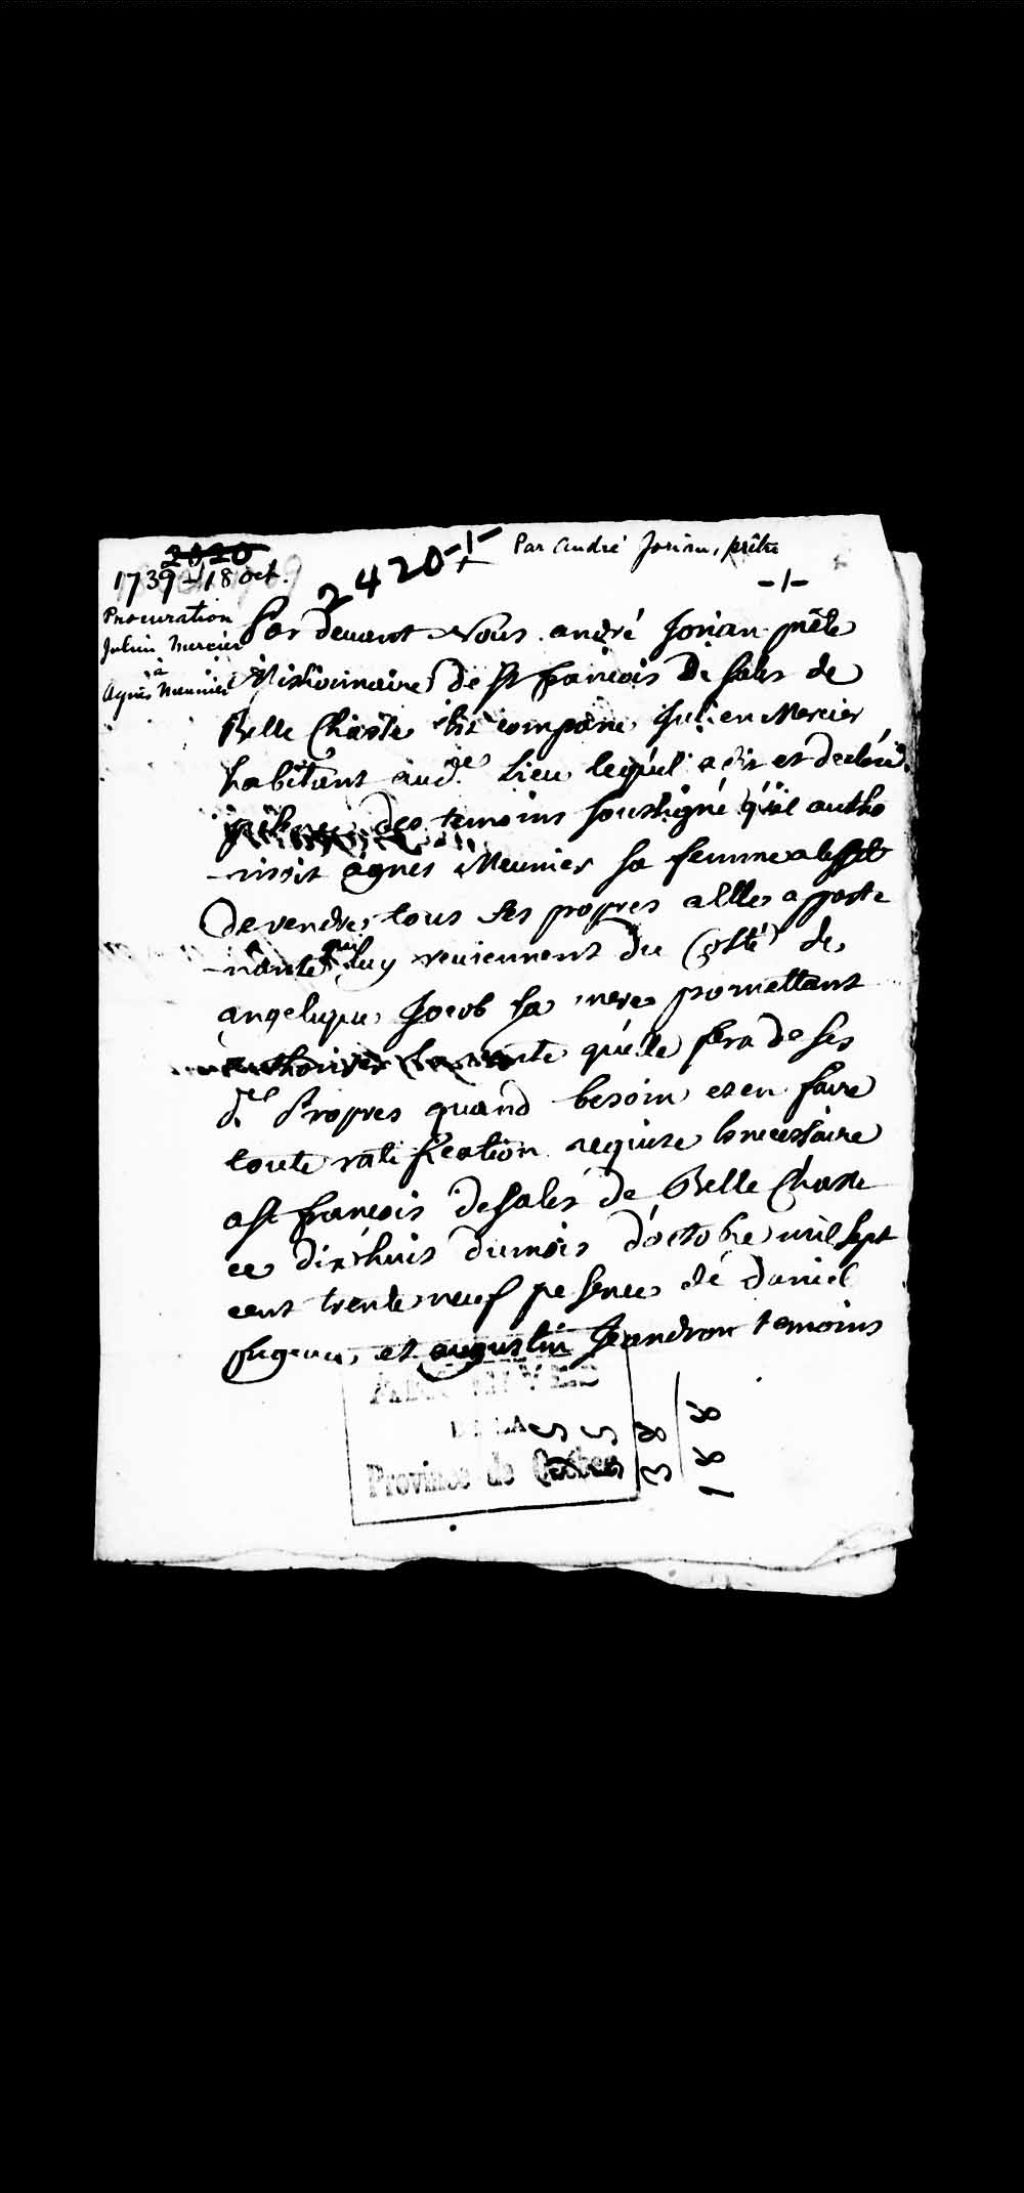 2020
1739 - 18 oct.
2420 -1-
Par André Jorian, prêtre
-1-
Procuration
Julien Mercier
à
Agnès Meunier
Par devant Nous andré Jorian prêtre
Missionnaire de St francois De Sales de
Belle Chasse est comparu Julien Mercier
habitant aud.t Lieu lequel a dit et declaré
des temoins soussigné qu'il autho
-risoit agnes Meunier sa femme a leffet
de vendre tous ses propres a Elle apparte
-nants qui luy reviennent du Costé de
angelique Jacob sa mere promettant
authoriser la vente qu'elle fera de ses
d.t Propres quand besoin et en faire
toute ratification requise & necessaire
a St francois de Sales de Belle Chasse
ce dix huit du mois d'octobre mil sept
cent trente neuf presence de daniel
et augustin Jeandron temoins
ARCHIVES
DE LA
Province de Québec
55
38
188